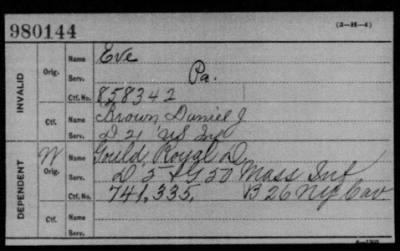 980144
(3-H-4)
INVALID
Orig.
Name Eve
Serv. Pa.
Ctf. No. 858342
Ctf.
Name Brown Daniel J
Serv. D 21 US Inf
DEPENDENT
W Orig.
Name Gould, Royal D.
Serv. D 5 & G 50 Mass Inf
Ctf. No. 741,335. B 26 Ny Cav
Ctf.
Name
Serv.